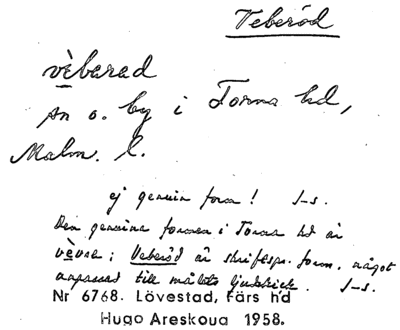 Veberöd
vèbarad
sn o. by i Torna hd,
Malm. l.
ej genuin form! I-s.
Den genuina formen i Torna hd är
vèvre; Veberöd är skriftspr. form, något
anpassad till målets ljudskick. I-s.
Nr 6768. Lövestad, Färs hd
Hugo Areskoug 1958.